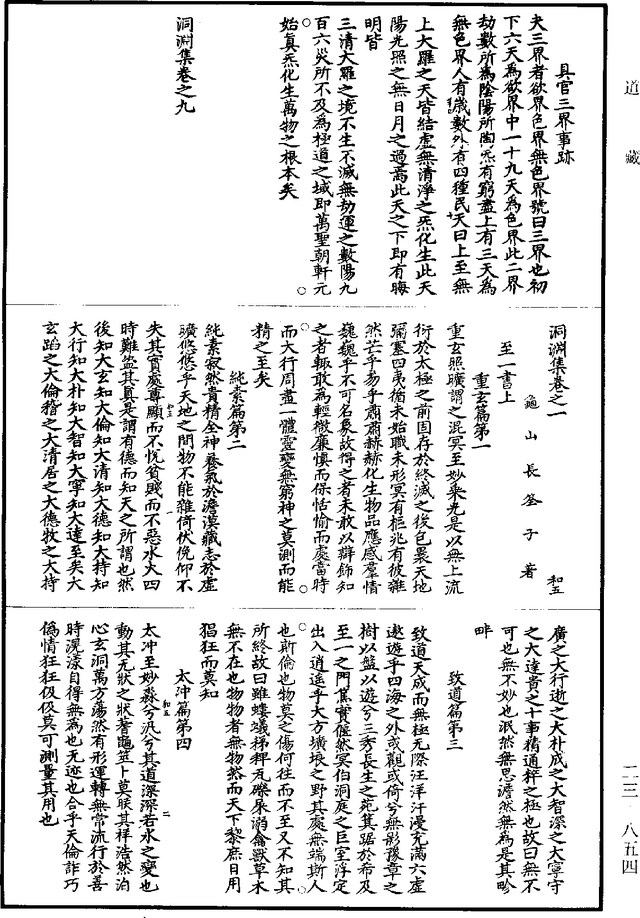 道藏
具官三界事跡
夫三界者欲界色界無色界號曰三界也初
下六天為欲界中一十九天為色界此二界
劫數所為陰陽所陶炁有窮盡上有三天為
無色界人有歲數外有四種民天曰上至無
上大羅之天皆結虛無清淨之炁化生此天
陽光照之無日月之過焉此天之下即有晦
明皆
三清大羅之境不生不滅無劫運之數陽九
百六災所不及為極道之域即萬聖朝軒元
始真炁化生萬物之根本矣
洞淵集卷之九
洞淵集卷之一
和五
龜山長筌子著
至一書上
重玄篇第一
重玄照曠謂之混冥至妙乘光是以無上流
衍於太極之前固存於終滅之後包裹天地
彌塞四夷猶未始職未形冥有樞兆有彼雜
然芒乎芴乎肅肅赫赫化生物品應感羣情
巍巍乎不可名象故得之者未敢以辯飾知
之者輒敢為輕微廉慎而保恬愉而處當時
而大行周盡一體靈變無窮神之莫測而能
精之至矣
純素篇第二
純素寂然貴精全神養氣於澹漠藏志於虛
曠悠悠乎天地之間物不能雜倚伏俛仰不
失其實處尊顯而不悅貧賤而不惡水大四
時難益其真是謂有德而知天之所謂也然
後知大玄知大倫知大清知大德知大持知
大行知大朴知大智知大寧知大達至矣大
玄蹈之大倫稽之大清居之大德牧之大持
廣之大行逝之大朴成之大智深之大寧守
之大達貴之十事精通粹之極也故曰無不
可也無不妙也泯然無思澹然無為是其畛
畔
致道篇第三
致道天成而無極无際汪洋汗漫充滿六虛
遨遊乎四海之外或觀或倚兮無影豫章之
樹以盤以遊兮三秀長生之苑箕踞於希及
至一之門萁實偃然冥伯洞庭之巨室浮定
出入逍遙乎大方壙埌之野其處無端斯人
也斯倫也物莫之傷何往而不至又不知其
所終故曰雖螻蟻梯稗瓦礫屎溺禽獸草木
無不在也物物者無物然而天下黎庶日用
猖狂而莫知
太沖篇第四
太沖至妙淼兮汎兮其道深深若水之變也
動其无狀之狀著龜筮卜莫睽其祥浩然泊
心玄洞萬方蕩然有形運轉無常流行於善
時滉漾自得無為也无迹也合乎天倫詐巧
偽情狂狂伋伋莫可測量其用也
二三·八五四